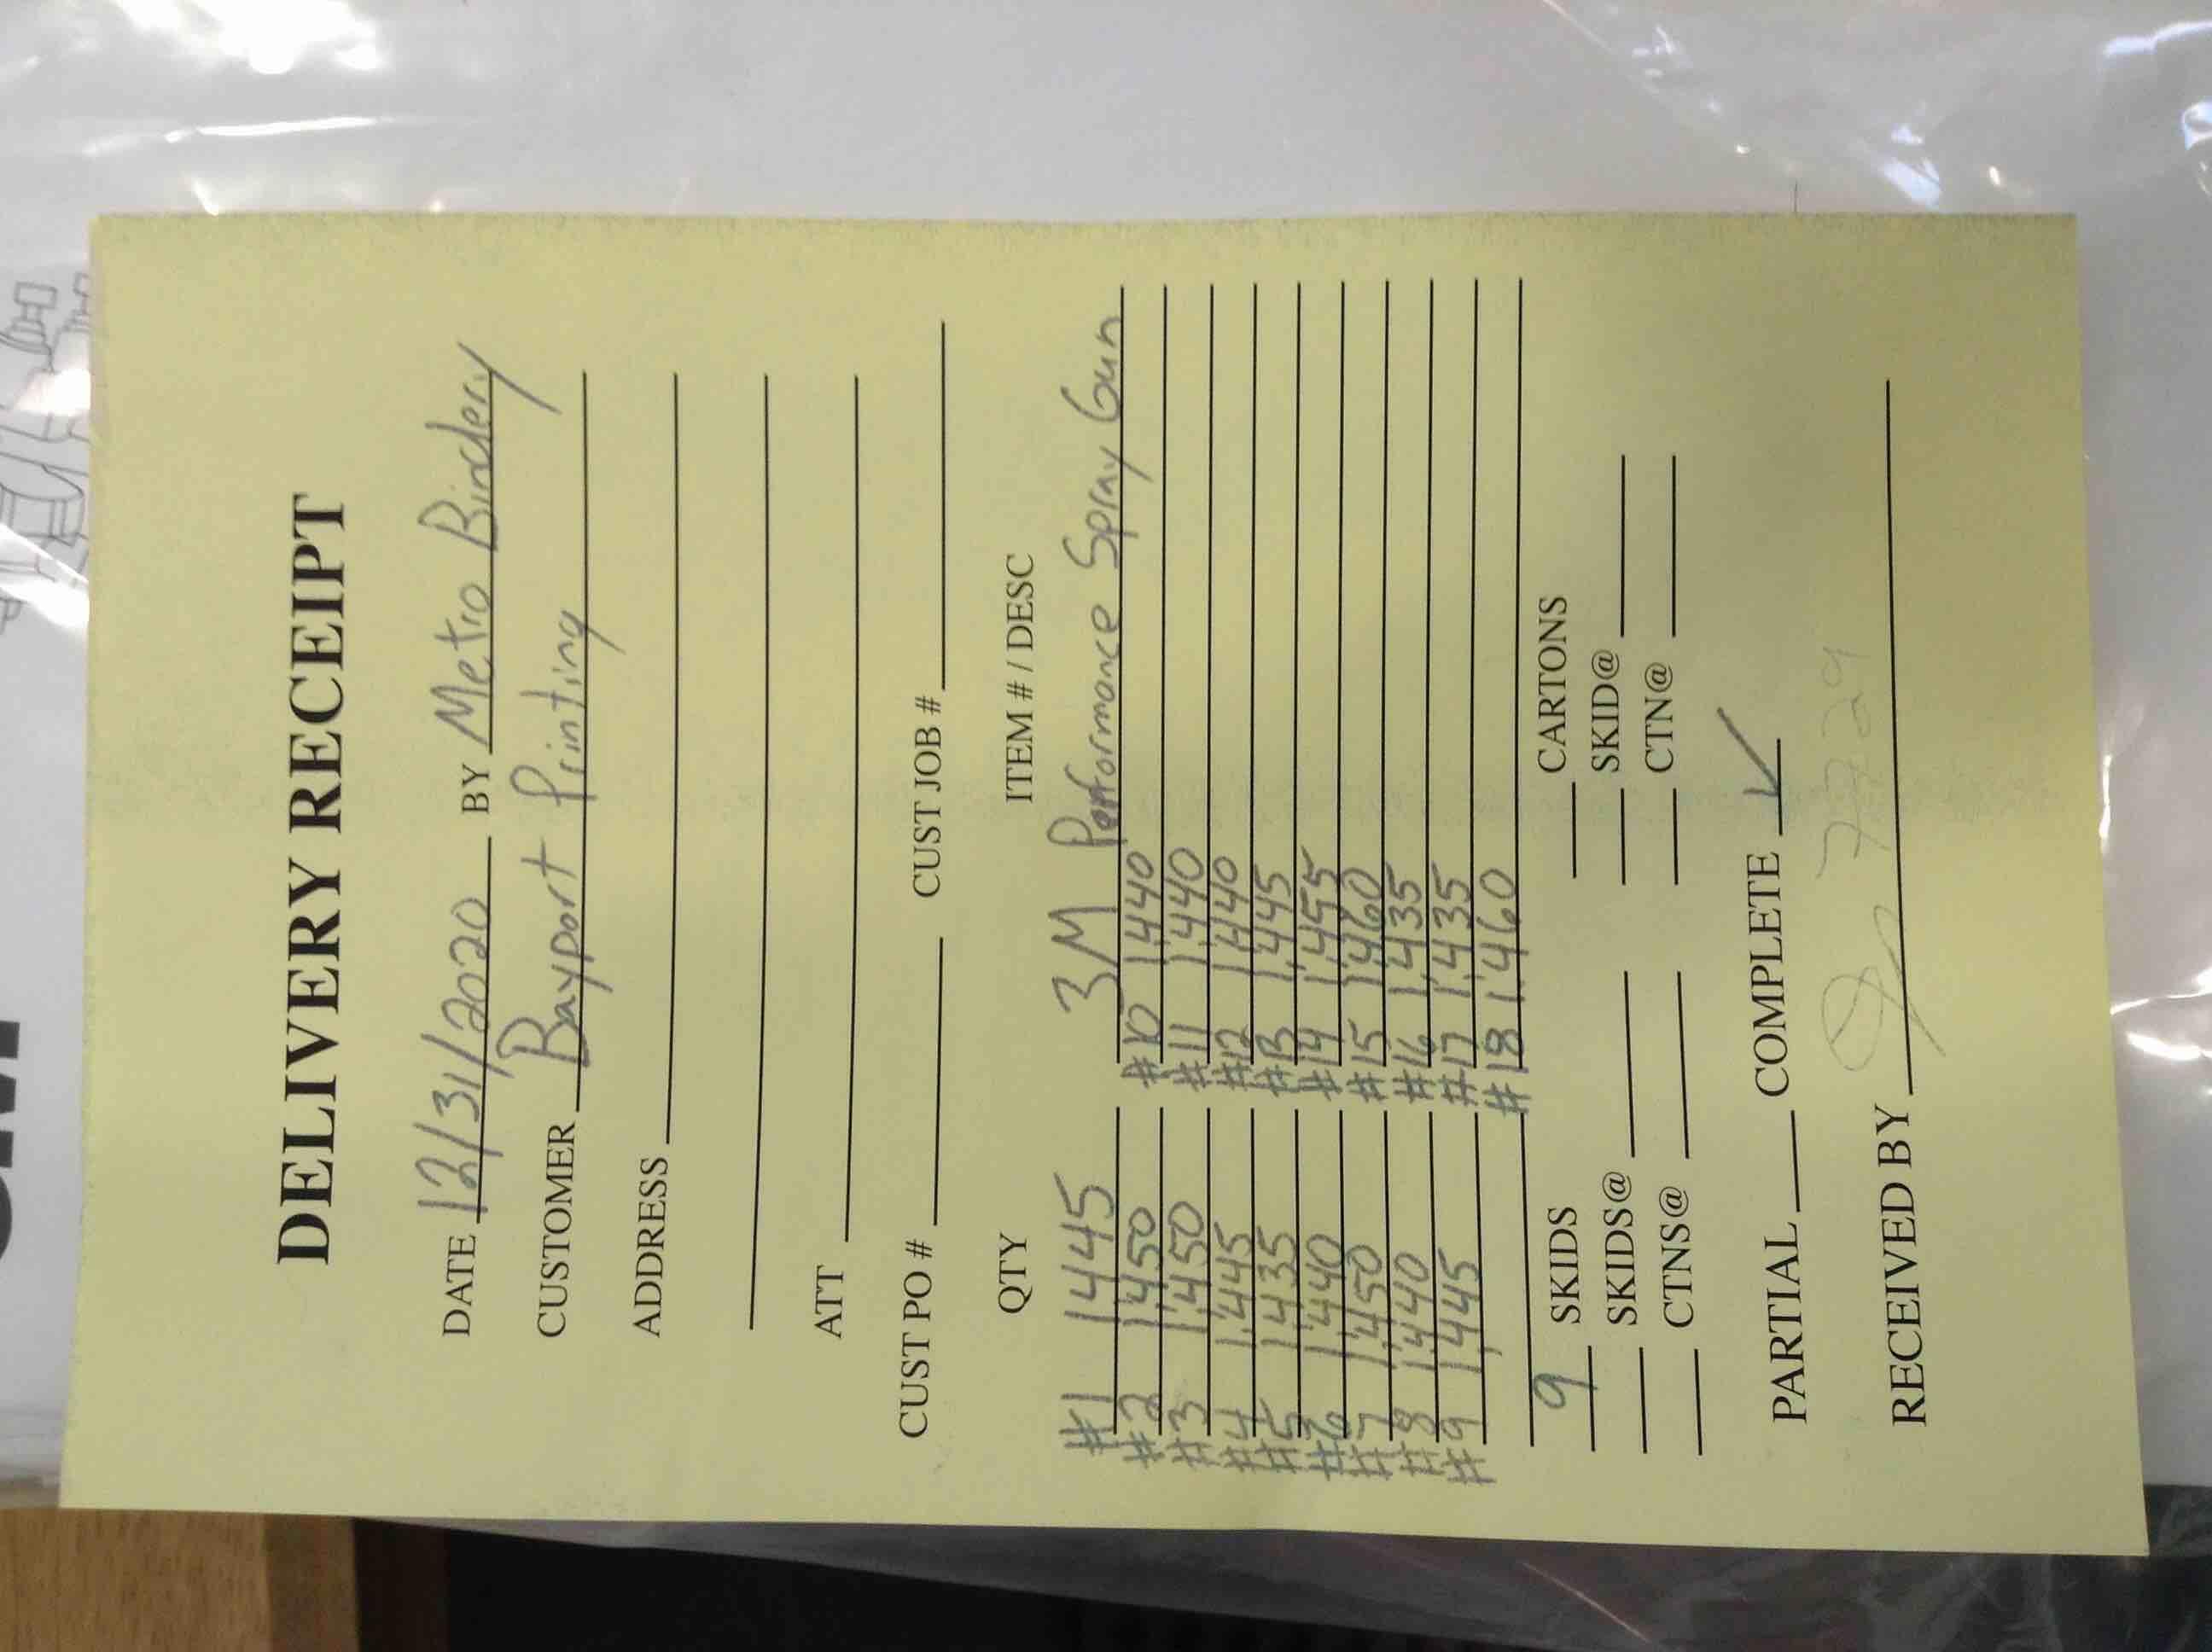 DELIVERY RECEIPT
DATE 12/31/2020 BY Metro Bindery
CUSTOMER Bayport Printing
ADDRESS
ATT
CUST PO # CUST JOB #
QTY ITEM # / DESC
#1 1445 3M Performance Spray Gun
#2 1,450 #10 1,440
#3 1,450 #11 1,440
#4 1,445 #12 1,440
#5 1,435 #13 1,445
#6 1,440 #14 1,455
#7 1,450 #15 1,460
#8 1,440 #16 1,435
#9 1,445 #17 1,435
#18 1,460
9 SKIDS CARTONS
SKIDS@ SKID@
CTNS@ CTN@
PARTIAL COMPLETE ✓
RECEIVED BY